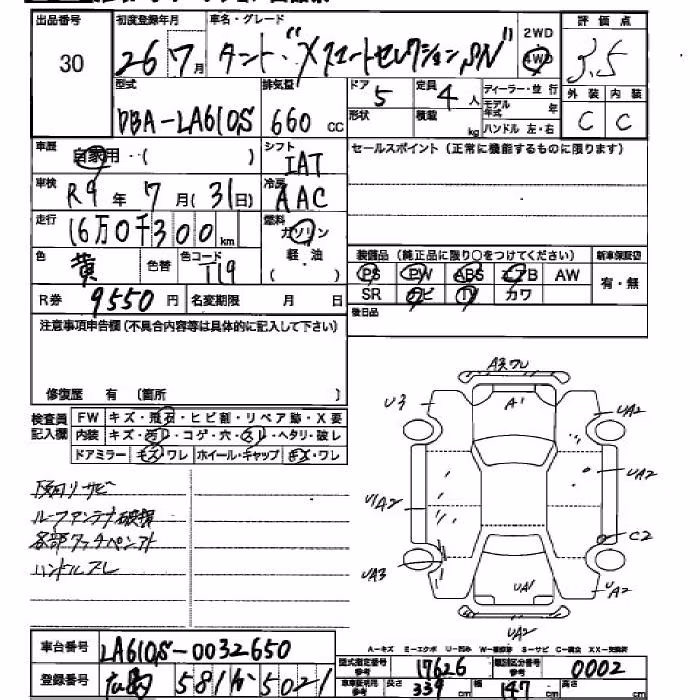 出品番号 初度登録年月 車名・グレード 2WD 4WD 評価点
30 26 7月 タント・"Xスマートセレクション,SN" 3.5
型式 排気量 ドア 5 定員 4人 ディーラー・並行 外装 内装
DBA-LA610S 660 cc 形状 積載 kg モデル年式 年 C C
ハンドル 左・右
車歴 自家用・( ) シフト IAT セールスポイント(正常に機能するものに限ります)
車検 R9年 7月(31日) 冷房 AAC
走行 16万0千300km 燃料 ガソリン
軽・油
( )
色 黄 色替 色コード T19 装備品(純正品に限り○をつけてください) 新車保証書
PS PW ABS エアB AW 有・無
R券 9550円 名変期限 月 日 SR ナビ TV カワ
注意事項申告欄(不具合内容等は具体的に記入して下さい) 後日品
修復歴 有 〔箇所 〕
検査員記入欄 FW キズ・飛石・ヒビ割・リペア跡・X要
内装 キズ・汚レ・コゲ・穴・スレ・ヘタリ・破レ
ドアミラー キズ・ワレ ホイール・キャップ キズ・ワレ
下回リサビ
ルーフアンテナ破損
各部タッチペンアト
ハンドルスレ
Aスワレ
U3 A1 UA2
UA2
U1A2
C2
UA3 UA1 UA2
UA2
A-キズ E-エクボ U-凹み W-補修跡 S-サビ C-腐食 XX-交換済
車台番号 LA610S-0032650
型式指定番号 参考 17626 類別区分番号 参考 0002
登録番号 広島 581 か 5021
車庫証明用 参考 長さ 339cm 幅 147cm 高さ cm